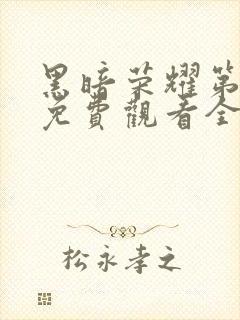 黑暗荣耀第
免費觀看全
松永孝之